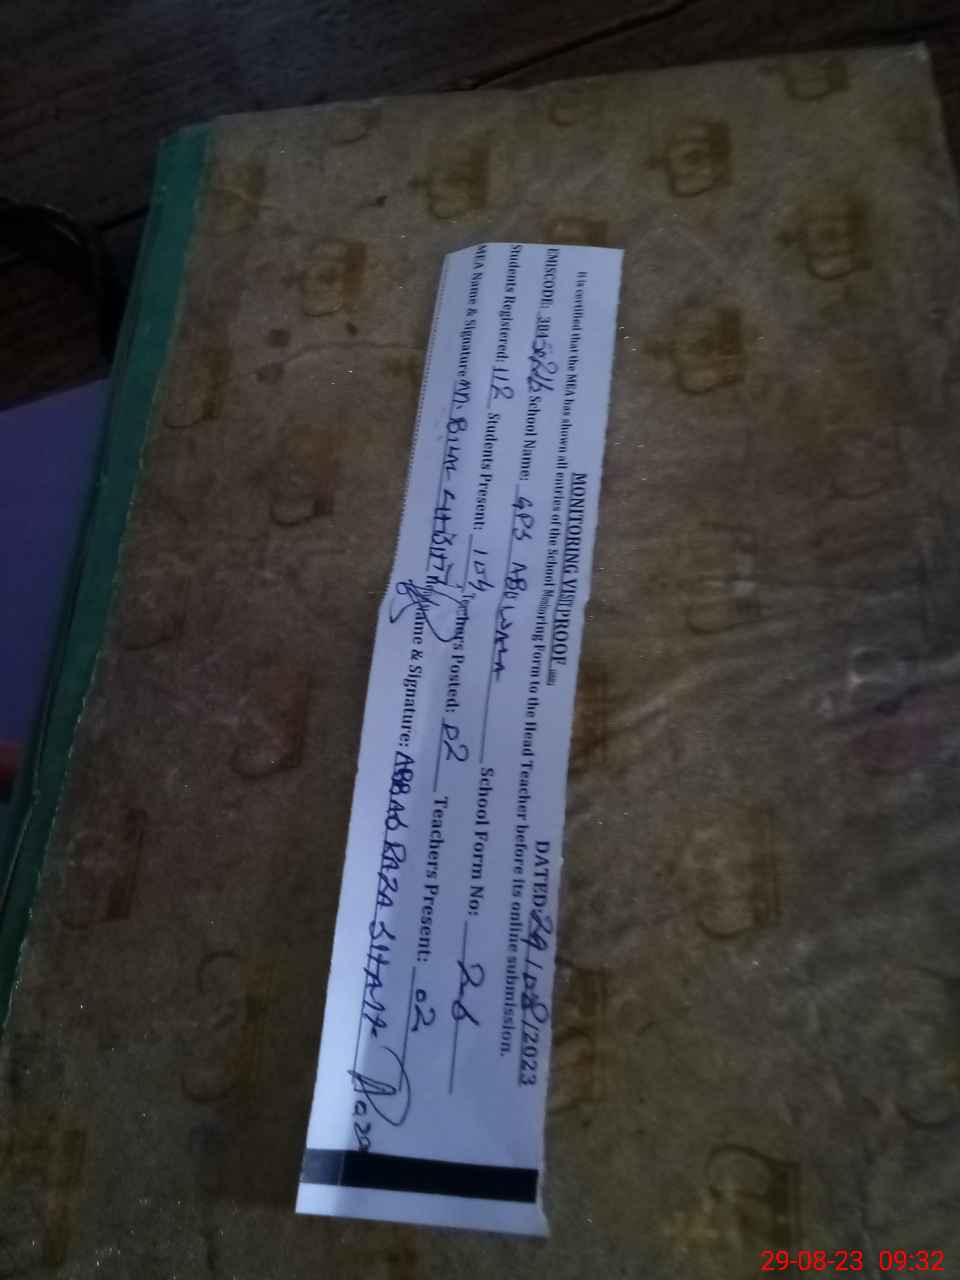 MONITORING VISIT PROOF DATED 29/08/2023
It is certified that the MEA has shown all entries of the School Monitoring Form to the Head Teacher before its online submission.
EMISCODE: School Name: GPS ABU WALA School Form No: 26
Students Registered: 112 Students Present: 104 Teachers Posted: 02 Teachers Present: 02
MEA Name & Signature: M. BILAL Name & Signature: ABBAS RAZA
29-08-23 09:32